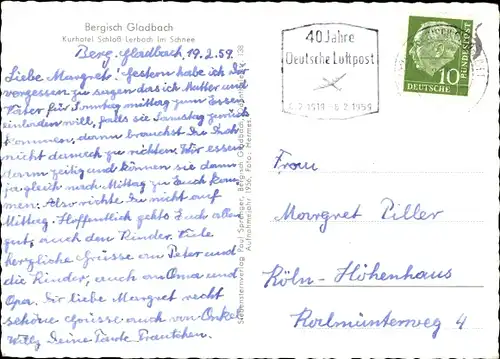 Bergisch Gladbach
Kurhotel Schloß-Lerbach im Schnee
Berg. Gladbach, 19.2.59.
Liebe Margret! Gestern habe ich Dir
vergessen zu sagen das ich Mutter und
Vater für Sonntag mittag zum Essen
einladen will, falls sie Samstag zurück
kommen, dann brauchst Du Dich
nicht danach zu richten. Wir essen
dann zeitig und können sie dann
ja gleich nach Mittag zu Euch kom-
men. Also richte Du nicht auf
Mittag. Hoffentlich geht's Euch allen
gut, auch den Kinder. Viele
herzliche Grüsse an Peter und
die Kinder, auch an Oma und
Opa. Dir liebe Margret recht
schöne Grüsse auch von Onkel
Willy Deine Tante Trautchen.
Siebensternverlag Paul Sprenger, Bergisch Gladbach,
Aufnahmejahr 1956, Foto: Hermes
40 Jahre
Deutsche Luftpost
6.2.1919-6.2.1959
10
DEUTSCHE
BUNDESPOST
Frau
Margret Piller
Köln-Höhenhaus
Radmünterweg 4